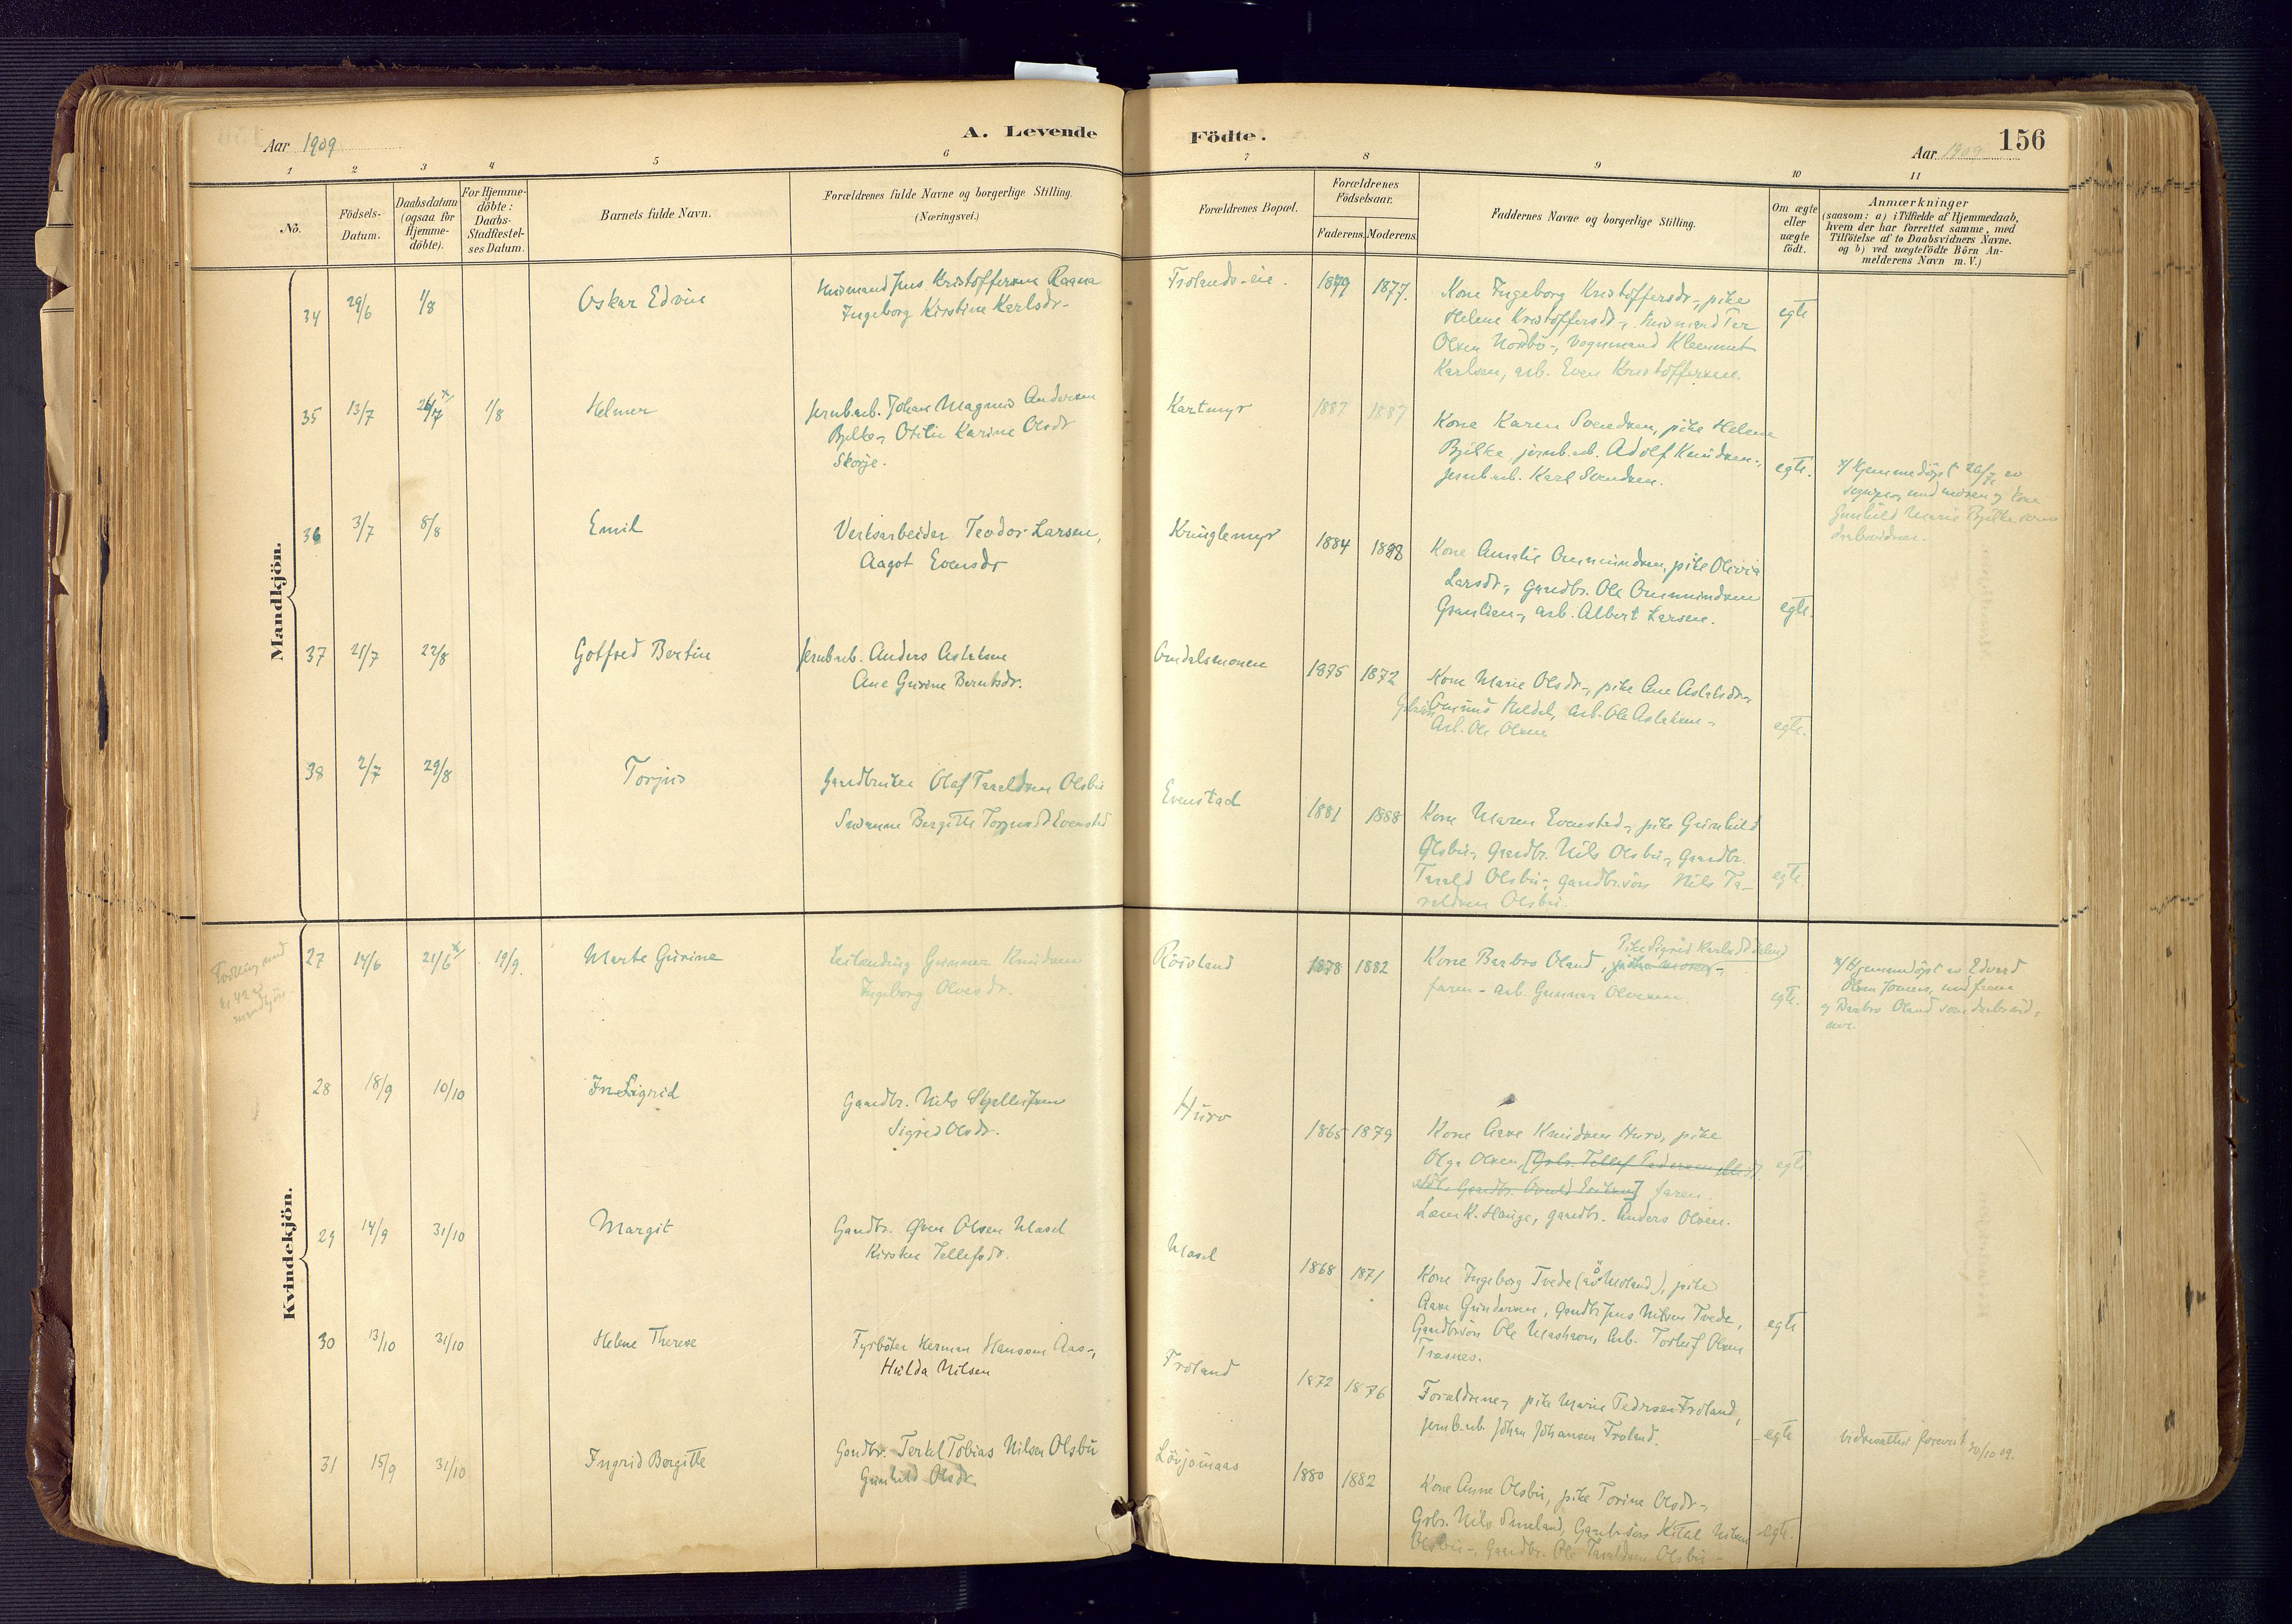 Aar 1909
A. Levende
Födte.
Aar 1909
156
1 2 3 4 5 6 7 8 9 10 11
No.
Födsels-
Datum.
Daabsdatum
(ogsaa for
Hjemme-
döbte).
For Hjemme-
döbte:
Daabs-
Stadfæstel-
ses Datum.
Barnets fulde Navn.
Forældrenes fulde Navne og borgerlige Stilling.
(Næringsvei.)
Forældrenes Bopæl.
Forældrenes
Födselsaar.
Faderens. Moderens.
Faddernes Navne og borgerlige Stilling.
Om ægte
eller
uægte
födt.
Anmærkninger
(saasom: a) i Tilfælde af Hjemmedaab,
hvem der har forrettet samme, med
Tilföielse af to Daabsvidners Navne.
og b) ved uægtefödte Börn An-
melderens Navn m. V.)
Mandkjön.
34 29/6 1/8 Oskar Edvin
Husmand Jens Kristoffersen Raana
Ingeborg Kirstine Karlsdr-
Frolands-eie. 1879 1877.
Kone Ingeborg Kristoffersdr-, pike
Helene Kristoffersdr-, husmand Ter
Olsen Nordbö-, vognmand Klemmet
Karlsen, arb. Even Kristoffersen.
egte
35 13/7 26/7 x/ 1/8 Helmer
Jernb.arb. Johan Magnus Andersen
Bjelke-, Otilie Karine Olsdr
Skorje.
Kartmyr 1887 1887
Kone Karen Svendsen, pike Helene
Bjelke jernb.arb. Adolf Knudsen-,
jernb.arb. Karl Svendsen.
egte.
x/ Hjemmedöpt 26/7 av
og kone
Gunhild Marie Bjelke som
daabsvidner.
36 3/7 8/8 Emil
Verksarbeider Teodor Larsen,
Aagot Evensdr
Kringlemyr 1884 1888
Kone Amalie Ommundsen, pike Olivia
Larsdr-, gaardbr. Ole Ommundsen
Graulien-, arb. Albert Larsen.
egte.
37 21/7 22/8 Gotfred Bertin
Jernb.arb. Anders Aslaksen
Ane Gurine Berntsdr.
Omdalsmonen 1875 1872
Kone Marie Olsdr-, pike Ane Aslaksdr-,
Omund Meldal, arb. Ole Aslaksen-,
Arb. Ole Olsen
egte.
38 2/7 29/8 Torjus
Gaardbruker Olaf Taraldsen Olsbu
Susanne Bergitte Torjusdr Evensted
Evenstad 1881 1888
Kone Maren Evensted-, pike Gunhild
Olsbu-, Gaardbr. Nils Olsbu-, Gaardbr.
Tarald Olsbu-, gaardbr.sön Nils Ta-
raldsen Olsbu.
egte.
Kvindekjön.
Tvilling med
no 42 av
mandkjön
27 14/6 21/6 x/ 19/9. Marte Gurine
Leilending Gunnar Knudsen
Ingeborg Olvesdr.
Röisland 1878 1882
Pike Sigrid Karlsdr
Kone Barbro Oland, pike Maren-,
faren- arb. Gunnar Olvesen
egte.
x/ Hjemmedöpt av Edvard
Olsen Jomaas, med faren
og Barbro Oland som daabsvid-
ner.
28 18/9 10/10 Sigrid
Gaardbr. Nils
Sigrid Olsdr.
Hurv 1865 1879
Kone Aase Knudsen Hurv, pike
Olga Olsen, [Grbr. Tellef Pedersen
Gaardbr.] faren.
K. Hauge, gaardbr. Anders Olsen.
egte
29 14/9 31/10 Margit
Gaardbr. Even Olsen Masel
Kirsten Tellefsdr.
Masel 1868 1871
Kone Ingeborg Tvede (av Ö Moland), pike
Aase Gundersen, gaardbr Jens Nilsen Tvede,
Gaardbr.sön Ole Mashavn, arb. Torluf Olsen
Trasnes.
egte
30 13/10 31/10 Helene Therese
Fyrböter Herman Hansson Aas-,
Hulda Nilsen
Froland 1872 1876
Forældrene-, pike Marie Pedrsen Froland,
jernb.arb. Johan Johansen Froland.
egte
Vidnesattest forevist 30/10 09.
31 15/9 31/10 Ingrid Bergitte
Gardbr. Terkel Tobias Nilsen Olsbu
Gunhild Olsdr.
Lövjomaas 1880 1882
Kone Anne Olsbu, pike Torine Olsdr-,
Grbr. Nils Smeland, Gaardbr.sön Kittel Nilsen
Olsbu-, Gaardbr. Ole Taraldsen Olsbu-
egte.